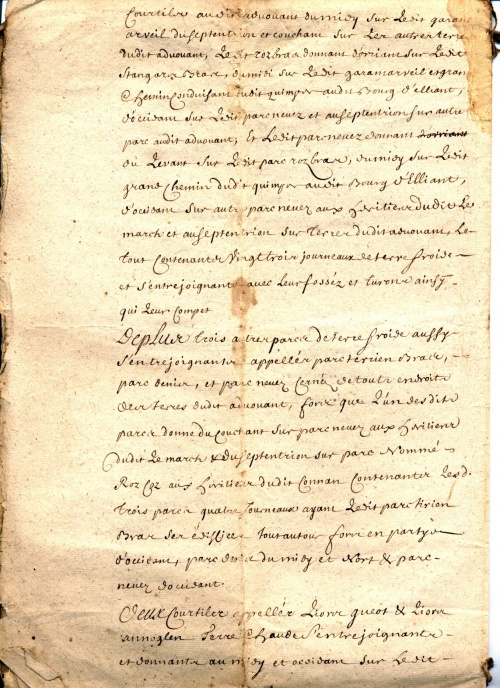 Courtils audit advouant du midy sur ledit garan
arveil du septentrion et couchant sur les autres terre
dudit advouant, Ledit rozbras donnant d'oriant sur ledit
Stangara Bras, du midi sur ledit garamarveil et gran
Chemin Conduisant dudit quimper audit Bourg d'Elliant,
d'occidant sur ledit parc nevez et au septentrion sur autre
parc audit advouant, Et Ledit parc nevez donnant
du Levant sur Ledit parc rozbras, du midy sur ledit
grand Chemin dudit quimper audit Bourg d'Elliant,
d'occidant sur autre parc nevez aux Heritiers dudit Le
march et au septentrion sur Terres dudit advouant, Le
tout Contenantz Vingt trois journeaux de terre froide
et s'entrejoignantz avec leurs fossez et ainsy
qui Leur Compet
De plus trois autres parcs de terre froide aussy
s'entrejoignantz appellés parc terrien Bras,
parc denier, et parc nevez Cernez de toutz endroitz
des terres dudit advouant, fors que l'un desditz
parcs donne du Couchant sur parc nevez aux Heritiers
dudit Le march & du septentrion sur parc Nommé
Roz Coz aux Heritiers dudit Connan Contenantz Lesd.
trois parcs quatre Journeaux ayant Ledit parc tirien
Bras ses ediffices tout autour fors en partye
d'occidant, parc du midy et Nort & parc
nevez d'occidant.
Deux Courtils appellés Liors gueot & Liors
annoglen Terre Chaude S'entrejoignantz
et donnantz au midy et occidant sur Ledit